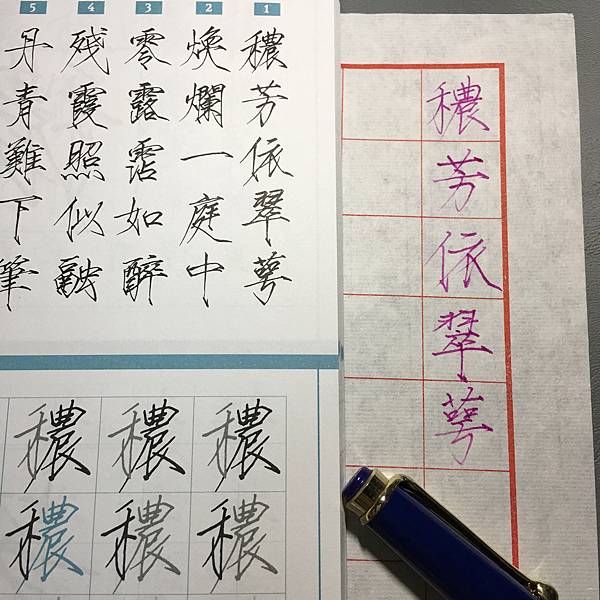 1
穠芳依翠萼
2
煥爛一庭中
3
零露霑如醉
4
殘霞照似融
5
丹青難下筆
穠穠穠
穠穠穠
穠芳依翠萼